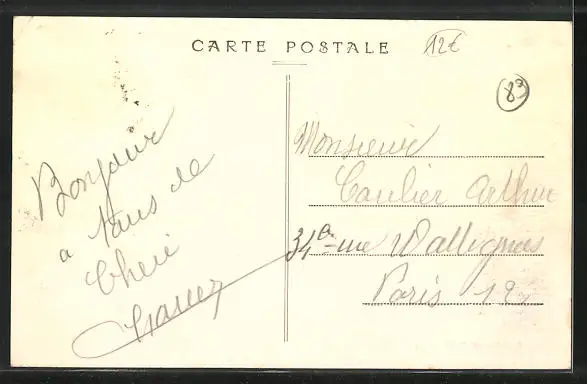 CARTE POSTALE
12€
83
Bonjour
a tous de
Monsieur
Caulier Arthur
34 rue Wattignies
Paris 12